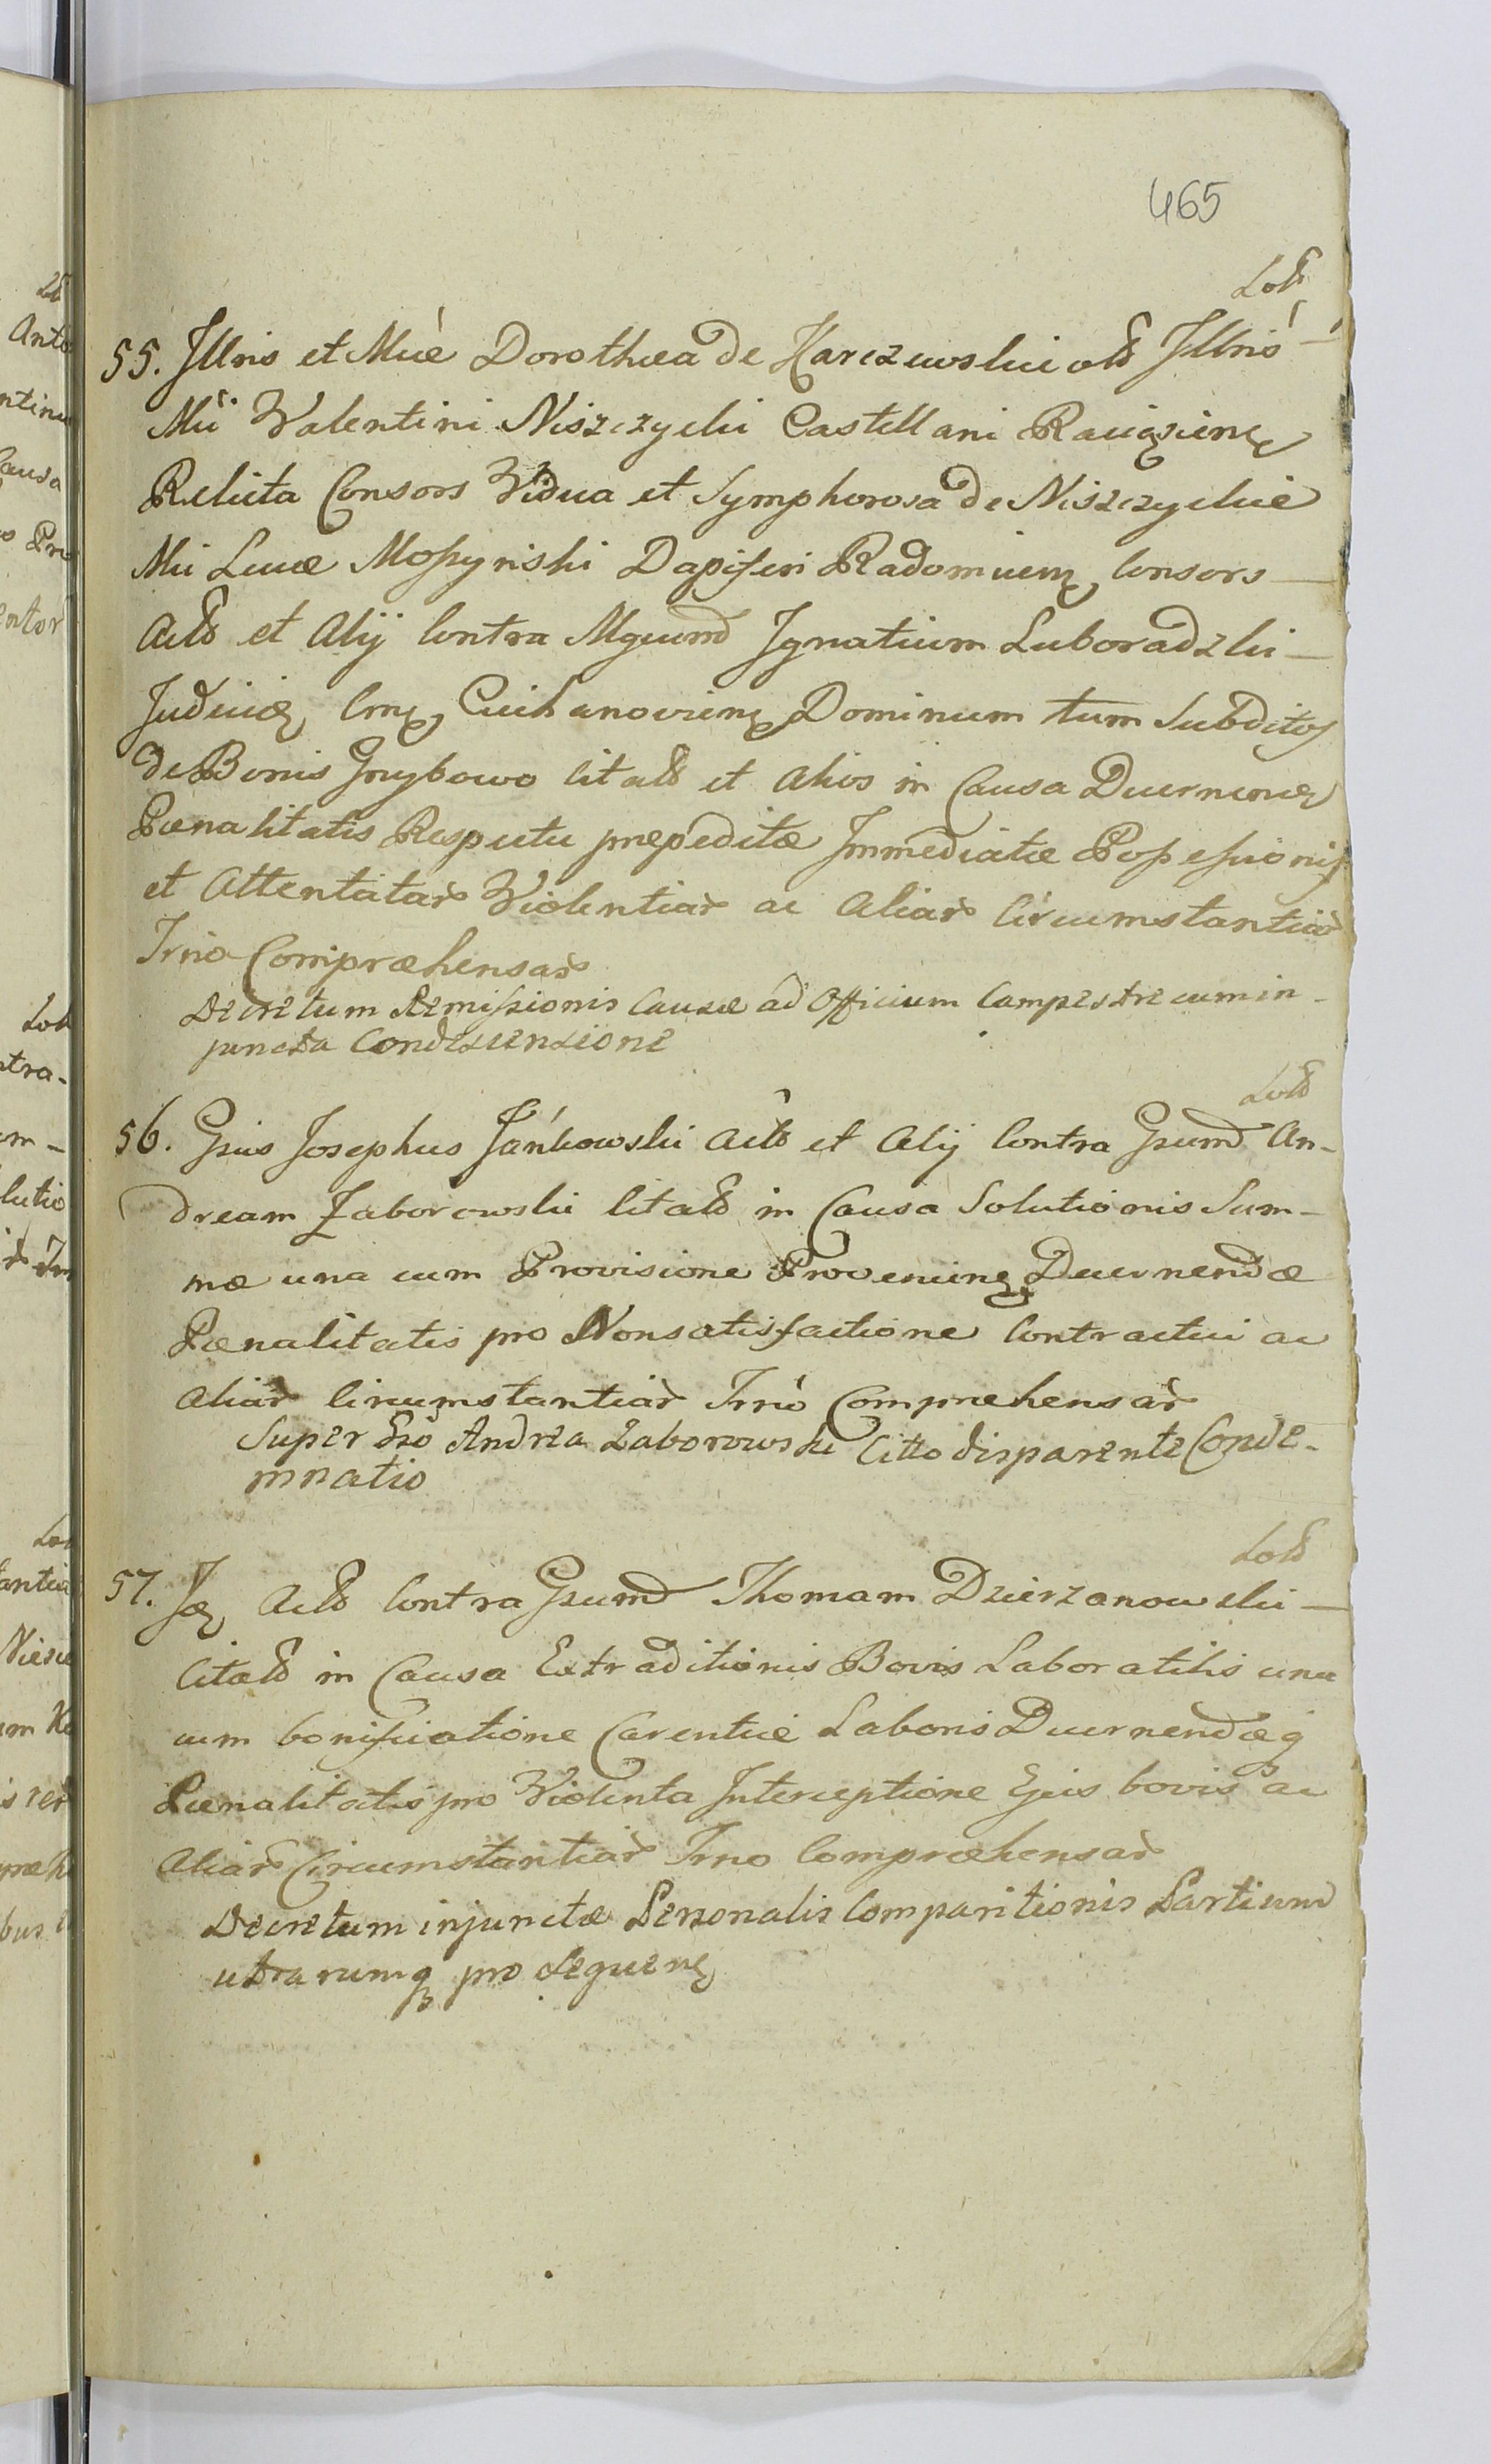 465
Lob
55. Jllris et Mue Dorothea de Karczewskie olb Jllris
Mii Valentini Niszczycki Castellani Raciązien
Relicta Consors Vidua et Symphorosa de Niszczyckie
Mii Lucæ Moszynski Dapiferi Radomien Consors
Actb et Alij Contra Mgcumd Jgnatium Luboradzki
Judicië Crne Ciechanovien Dominum tum Subditos
de Bonis Grzybowo Citatb et Alios in Causa Decernenæ
Pœnalitatis Respectu præpeditæ Jmmediatæ Possessionis
et Attentatar Violentiar ac Aliar Circumstantiar
Trmo Compræhensar
Decretum Remissionis Causæ ad Officium Campestre cum in-
juncta Condescensione
Lotb
56. Gsus Josephus Jánkowski Actb et Alij Contra Gsumd An-
dream Zaborowski Citatb in Causa Solutionis Sum-
mæ una cum Provisione Provenien Decernendæ
Pœnalitatis pro Nonsatisfactione Contractui ac
Aliar Circumstantiar Trmo Compræhensar
Super Gso Andrea Zaborowski Citto disparente Conde-
mnatio
Lotb
57. Jd Actb Contra Gsumd Thomam Dzierzanowski
Citatb in Causa Extraditionis Bovis Laboratilis una
cum bonificatione Carentiæ Laboris Decernendæq
Pœnalitatis pro Violenta Interceptione Ejus bovis ac
Aliar Circumstantiar Trmo Compræhensar
Decretum injunctæ Personalis Comparitionis Partium
utrarumq pro sequen